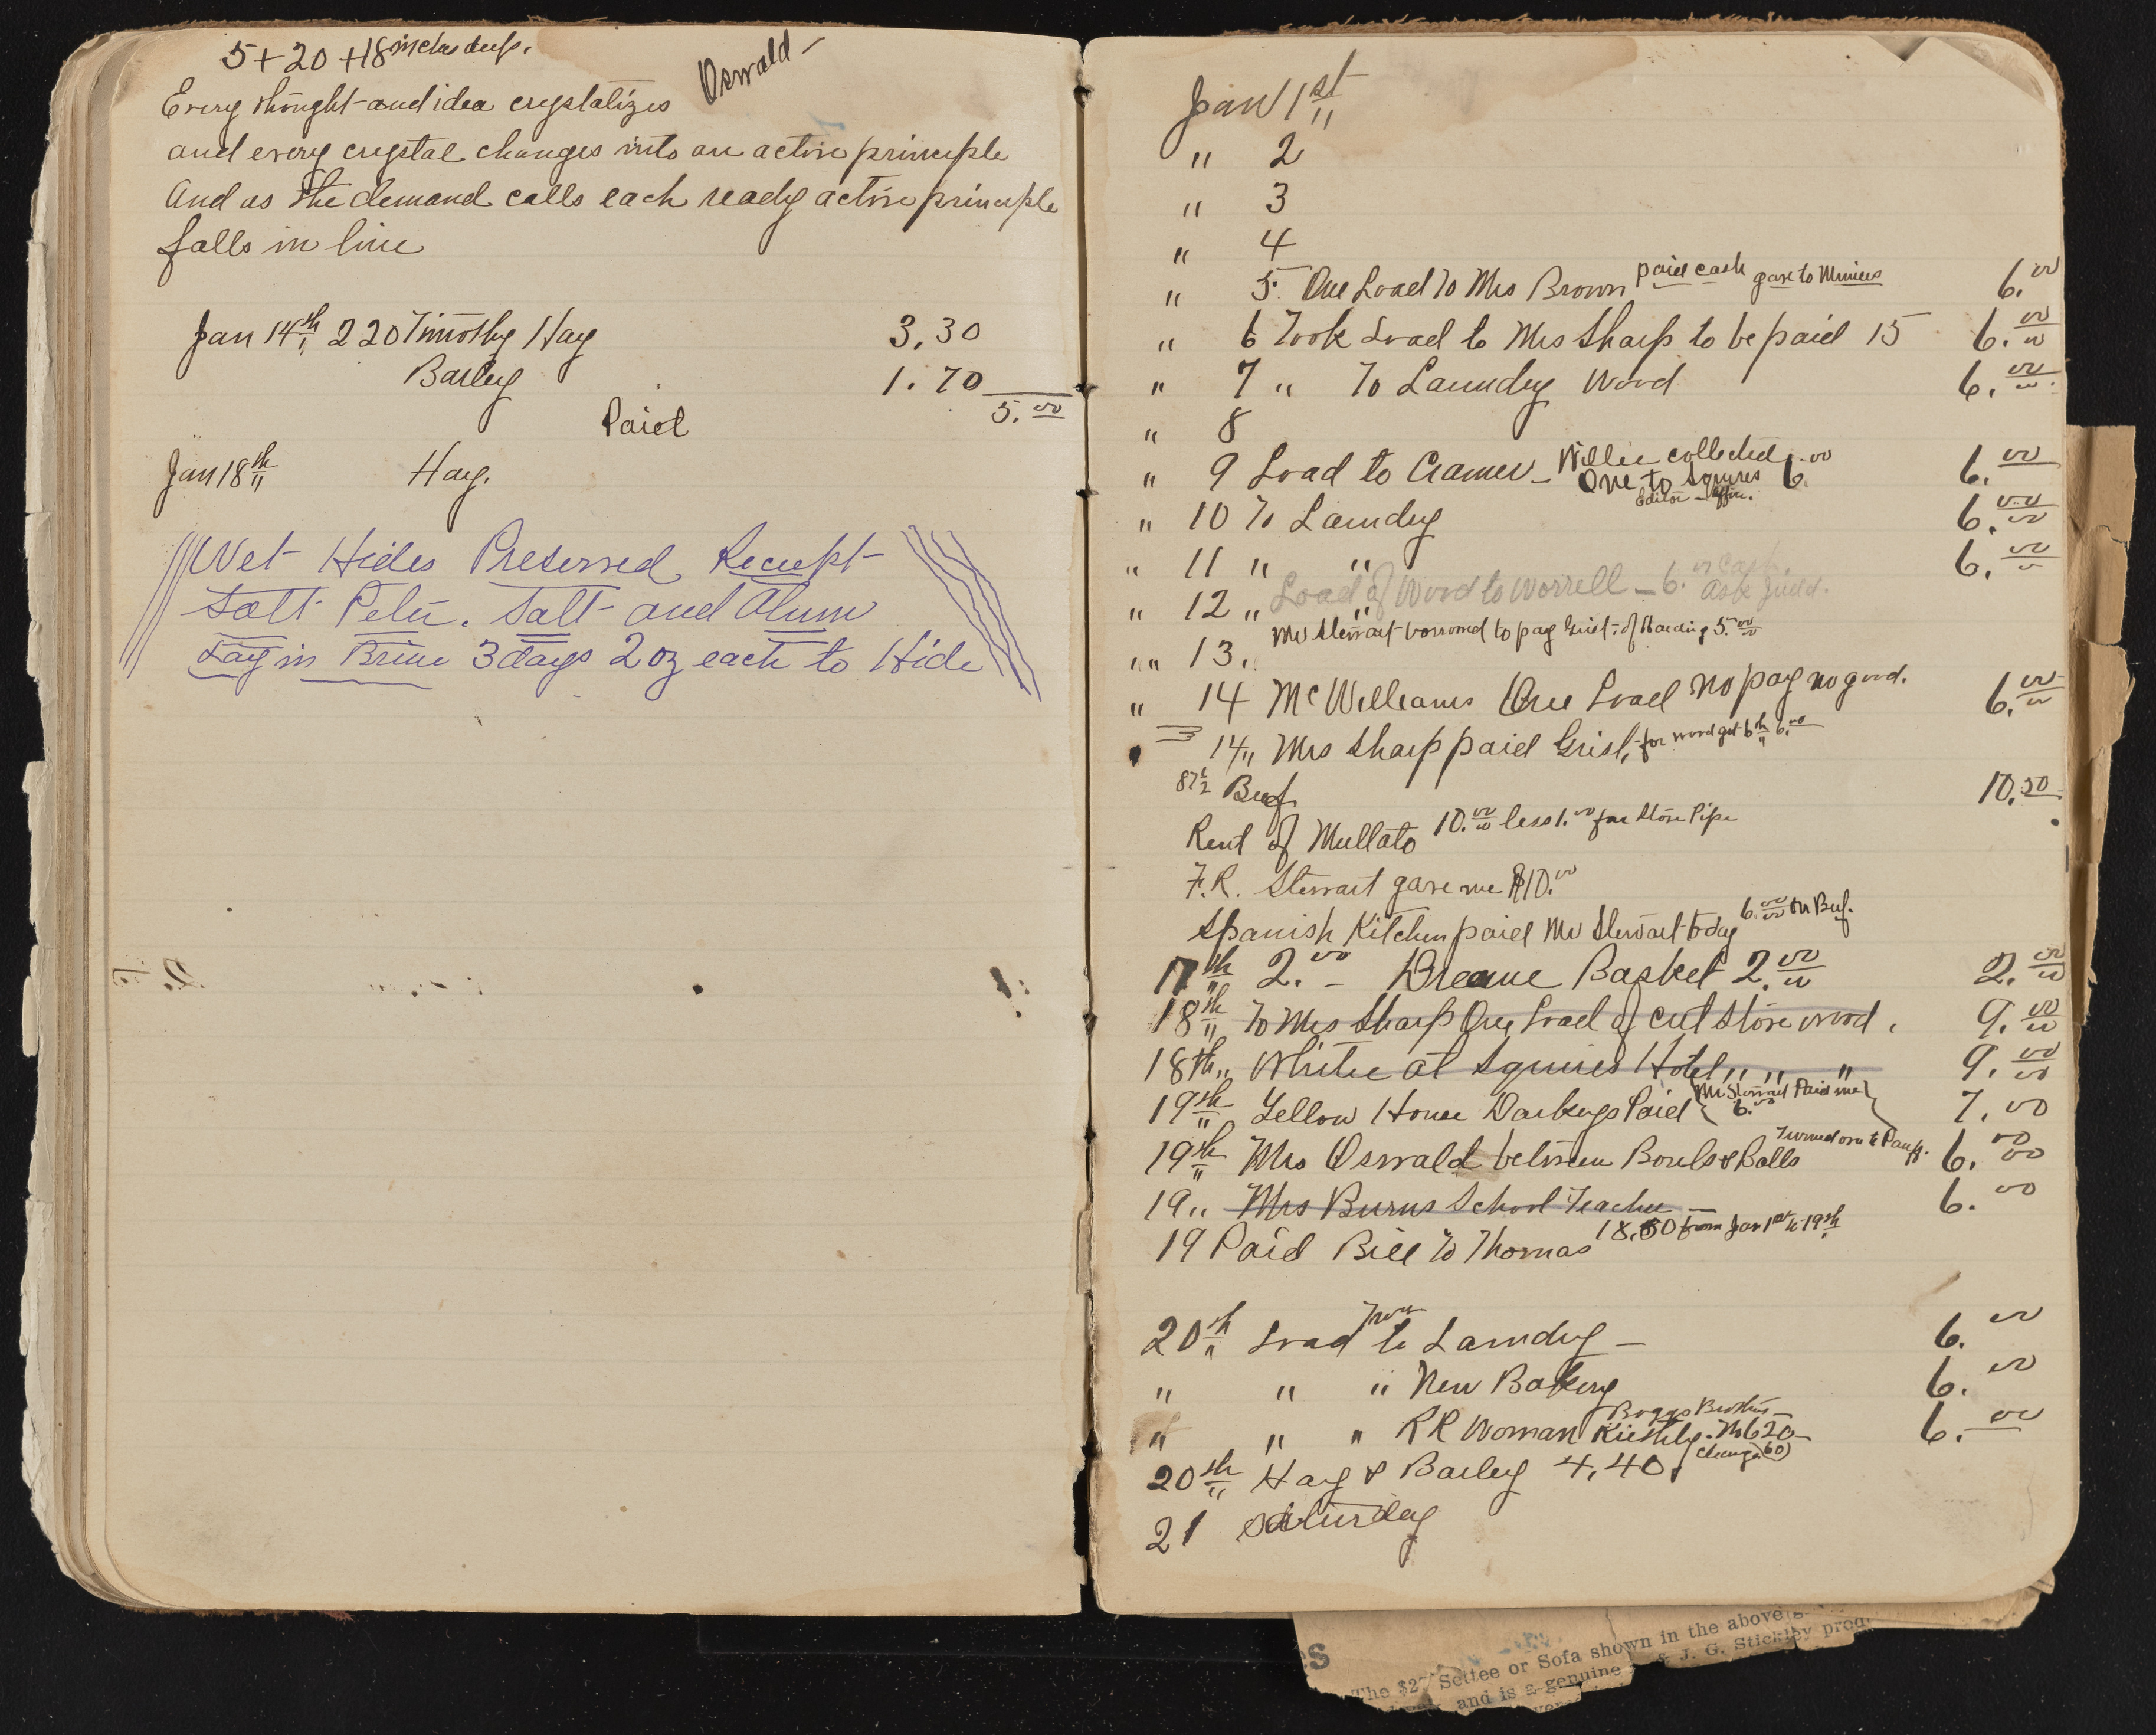 5 + 20 + 18 inches deep.
Oswald –
Every thought and idea crystalizes
and every crystal changes into an active principle
And as the demand calls each ready active principle
falls in line
Jan 14th 220 Timothy Hay 3.30
Barley 1.70
5.00
Paid
Jan 18th Hay.
Wet Hides Preserved Receipt
Salt Petre. Salt and Alum
Lay in Brine 3 days 2 oz each to Hide
Jan 1st
" 2
" 3
" 4
" 5. One Load to Mrs Brown paid cash gave to 6.00
" 6 Took Load to Mrs Sharp to be paid 15 6.00
" 7 " To Laundry Wood 6.00
" 8
" 9 Load to Cramer – Willie collected 6.00
One to Squires 6.00
Editor – Office.
" 10 To Laundry 6.00
" 11 " " 6.00
" 12 " "
Load of Wood to Worrell – 6. in Cash.
ask Judd.
Mr Stewart borrowed to pay Grist. of Harding 5.00
" 13 "
" 14 McWilliams One Load no pay no good. 6.00
14 " Mrs Sharp paid Grist, for wood got 6th 6.00
87½ Beef 10.50
Rent of Mullato 10.00 less 1.00 for Stove Pipe
F.R. Stewart gave me $10.00
Spanish Kitchen paid Mr Stewart today 6.00 on Beef.
17th 2.00 – Basket 2.00 2.00
18th To Mrs Sharp One Load of cut stove wood. 9.00
18th " White at Squires Hotel " " " 9.00
19th Yellow House Darkeys Paid (Mr Stewart Paid me 6.00) 7.00
19th Mrs Oswald between & Balls Turned over to 6.00
19 " Mrs Burns School Teacher – 6.00
19 Paid Bill to Thomas 18.50 from Jan 1st to 19th
20th Load to Laundry – 6.00
" " " New Bakery 6.00
Boggs Brothers –
" " " RR Woman No 620 6.00
20th Hay & Barley 4.40. (change 60)
21 Saturday
es
The $27 Settee or Sofa shown in the above
and is a genuine & J. G. Stickley